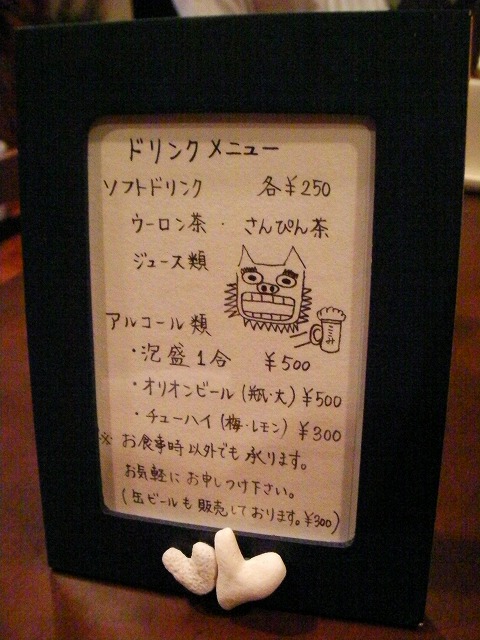 ドリンクメニュー
ソフトドリンク 各¥250
ウーロン茶・さんぴん茶
ジュース類
アルコール類
・泡盛1合 ¥500
・オリオンビール(瓶・大)¥500
・チューハイ(梅・レモン)¥300
※お食事時以外でも承ります。
お気軽にお申しつけ下さい。
(缶ビールも販売しております。¥300)